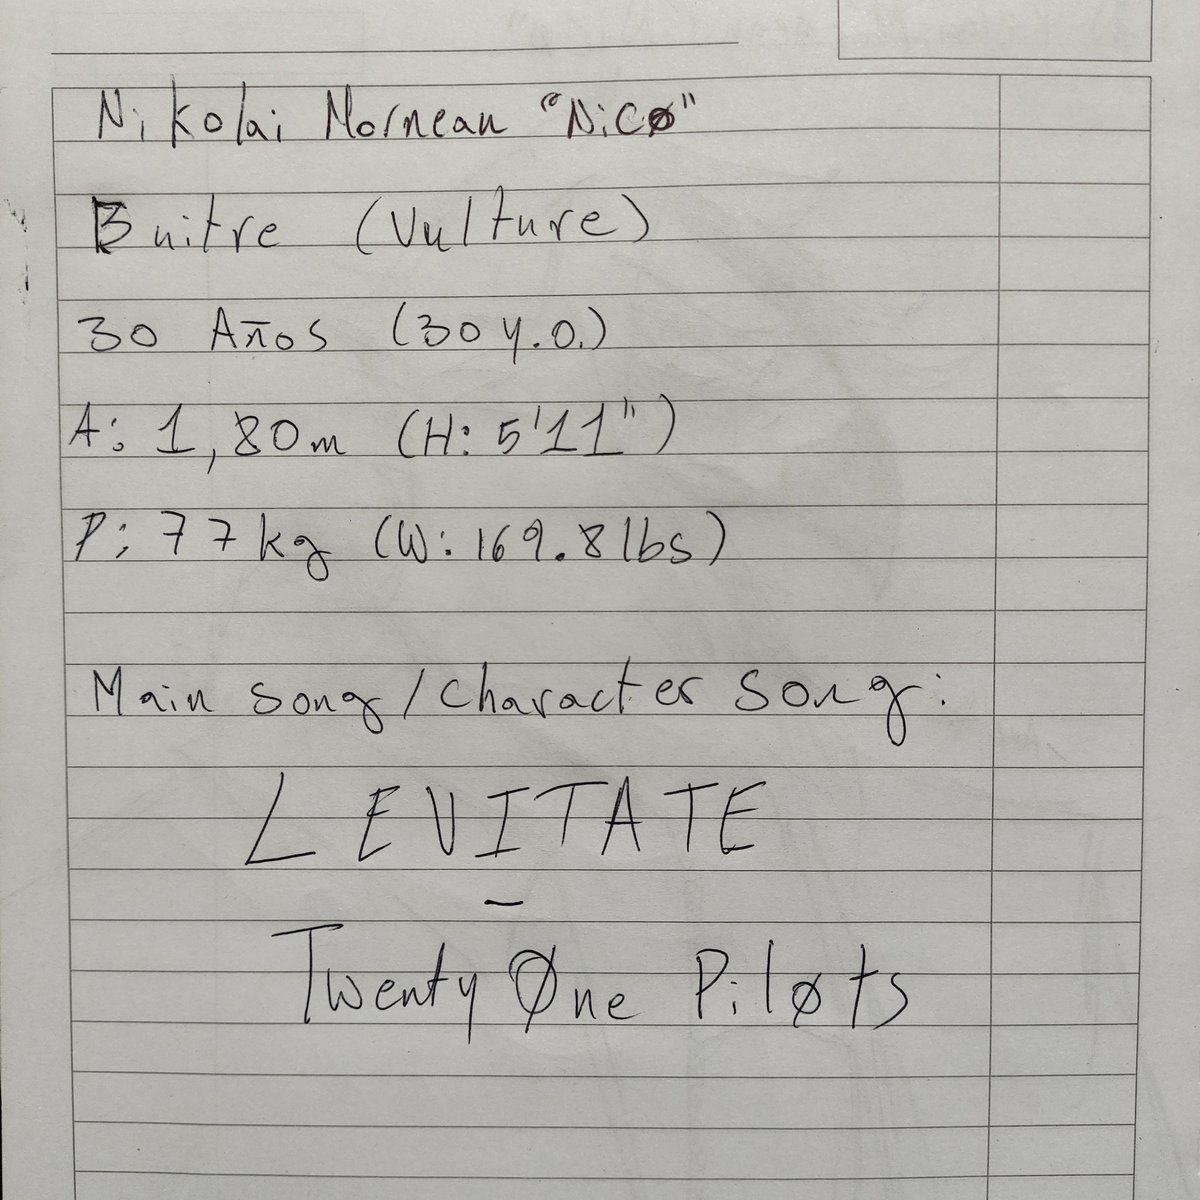 Nikolai Mornean "Nicø"
Buitre (Vulture)
30 Años (30 y.o.)
A: 1,80m (H: 5'11")
P: 77kg (W: 169.8lbs)
Main song/character song:
LEVITATE
–
Twenty Øne Piløts